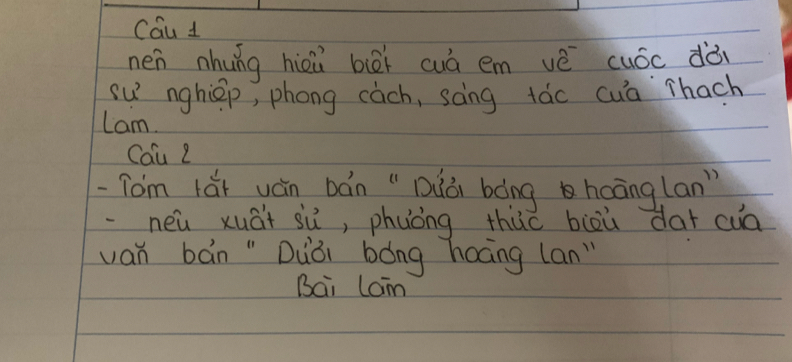 Câu 1
nên những hiểu biết của em về cuộc đời
sự nghiệp, phong cách, sáng tác của Thạch
Lam.
Câu 2
- Tóm tắt văn bản " Dưới bóng hoàng lan"
- nêu xuất sứ, phương thức biểu đạt của
văn bản " Dưới bóng hoàng lan"
Bài làm